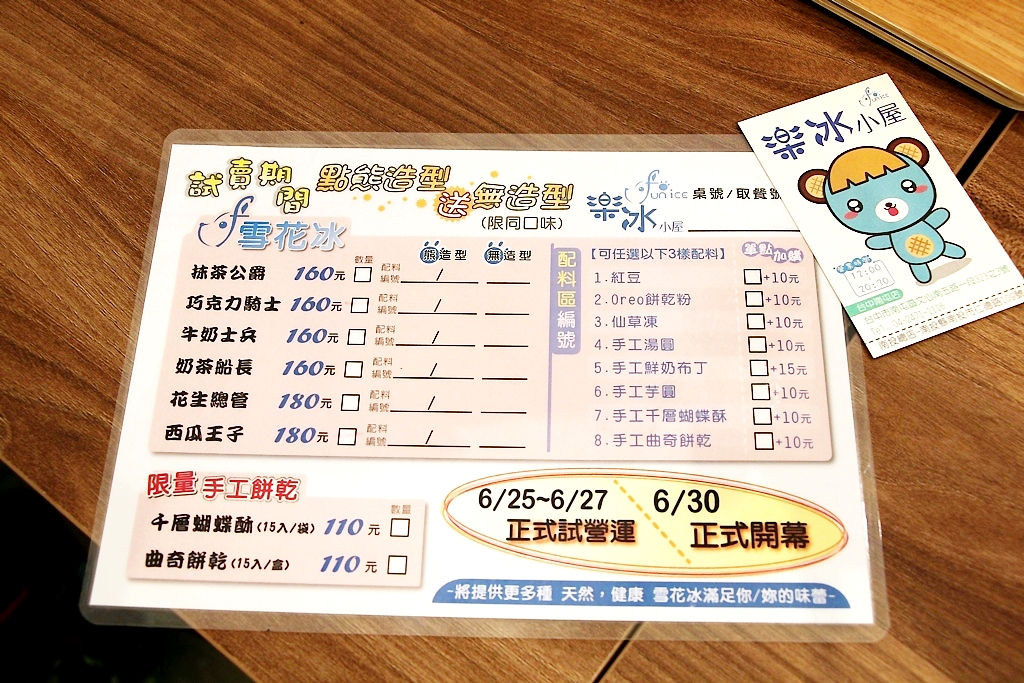 試賣期間 點熊造型送無造型
(限同口味)
funicc
樂冰小屋
桌號/取餐號
f雪花冰
數量 熊造型 無造型
抹茶公爵 160元 □ 配料編號 /
巧克力騎士 160元 □ 配料編號 /
牛奶士兵 160元 □ 配料編號 /
奶茶船長 160元 □ 配料編號 /
花生總管 180元 □ 配料編號 /
西瓜王子 180元 □ 配料編號 /
配料區編號
【可任選以下3樣配料】 單點加購
1.紅豆 □+10元
2.Oreo餅乾粉 □+10元
3.仙草凍 □+10元
4.手工湯圓 □+10元
5.手工鮮奶布丁 □+15元
6.手工芋圓 □+10元
7.手工千層蝴蝶酥 □+10元
8.手工曲奇餅乾 □+10元
限量 手工餅乾
數量
千層蝴蝶酥(15入/袋) 110元 □
曲奇餅乾(15入/盒) 110元 □
6/25~6/27 正式試營運
6/30 正式開幕
-將提供更多種 天然,健康 雪花冰滿足你/妳的味蕾-
funicc
樂冰小屋
12:00
20:30
台中南屯店